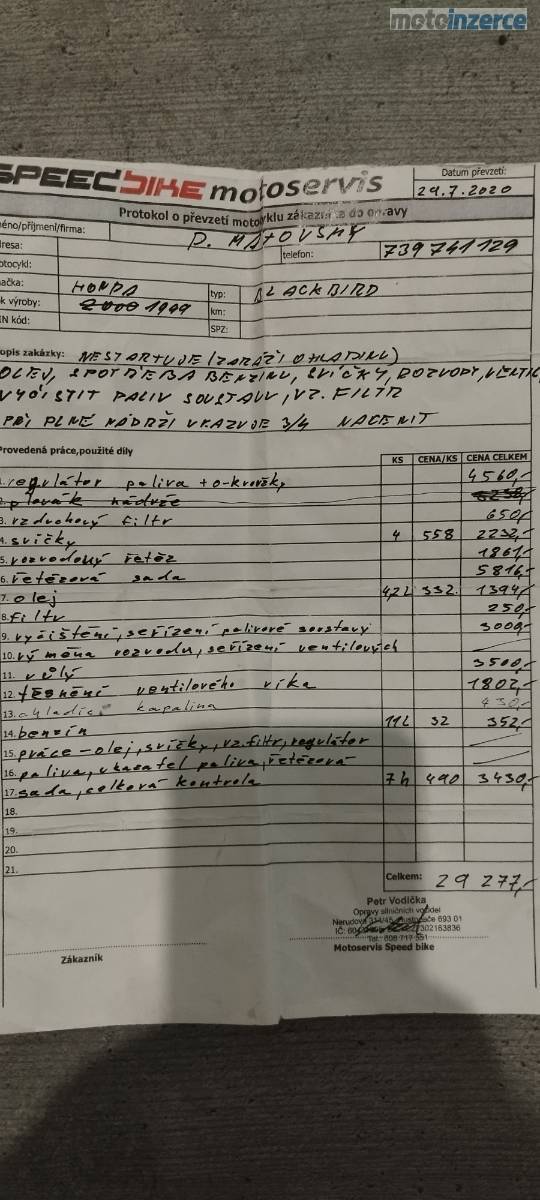 motoinzerce
SPEEDBIKE motoservis
Datum převzetí:
29.7.2020
Protokol o převzetí motocyklu zákazníka do opravy
méno/příjmení/firma: P. MATOVSKÝ
dresa: telefon: 739 741 129
otocykl:
načka: HONDA typ: BLACKBIRD
ok výroby: 2000 1999 km:
IN kód: SPZ:
opis zakázky: NESTARTUJE (ZARÁŽÍ O HLADINU)
OLEJ, SPOTŘEBA BENZINU, SVÍČKY, ROZVODY, VENTIL
VYČISTIT PALIV SOUSTAVU, VZ. FILTR
PŘI PLNÉ NÁDRŽI UKAZUJE 3/4 NACENIT
Provedená práce, použité díly KS CENA/KS CENA CELKEM
1. regulátor paliva + o-kroužky 4560,-
2. plovák nádrže
3. vzduchový filtr 650,-
4. svíčky 4 558 2232,-
5. rozvodový řetěz 1861,-
6. řetězová sada 5816,-
7. olej 4,2L 332 1394,-
8. filtr 250,-
9. vyčištění, seřízení palivové soustavy 3000,-
10. výměna rozvodu, seřízení ventilových
11. vůlý 3500,-
12. těsnění ventilového víka 1802,-
13. chladící kapalina 430,-
14. benzin 11L 32 352,-
15. práce - olej, svíčky, vz. filtr, regulátor
16. paliva, ukazatel paliva, řetězová
17. sada, celková kontrola 7h 490 3430,-
18.
19.
20.
21.
Celkem: 29 277,-
Petr Vodička
Opravy silničních vozidel
Nerudova 693 01
IČ:
Tel.: 608 717 551
Motoservis Speed bike
Zákazník